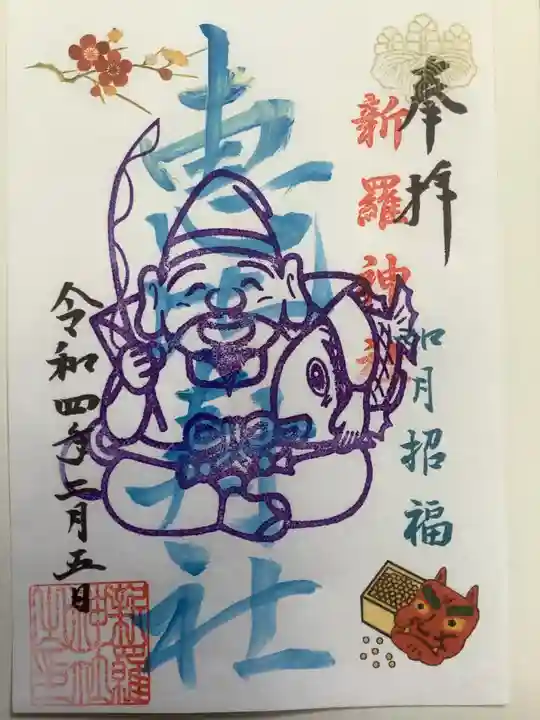 奉拝
新羅神社
如月招福
社
令和四年二月五日
新羅神社之印